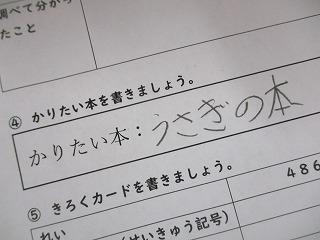 調べて分かっ
たこと
④ かりたい本を書きましょう。
かりたい本：うさぎの本
⑤ きろくカードを書きましょう。
れい
(せいきゅう記号)
486